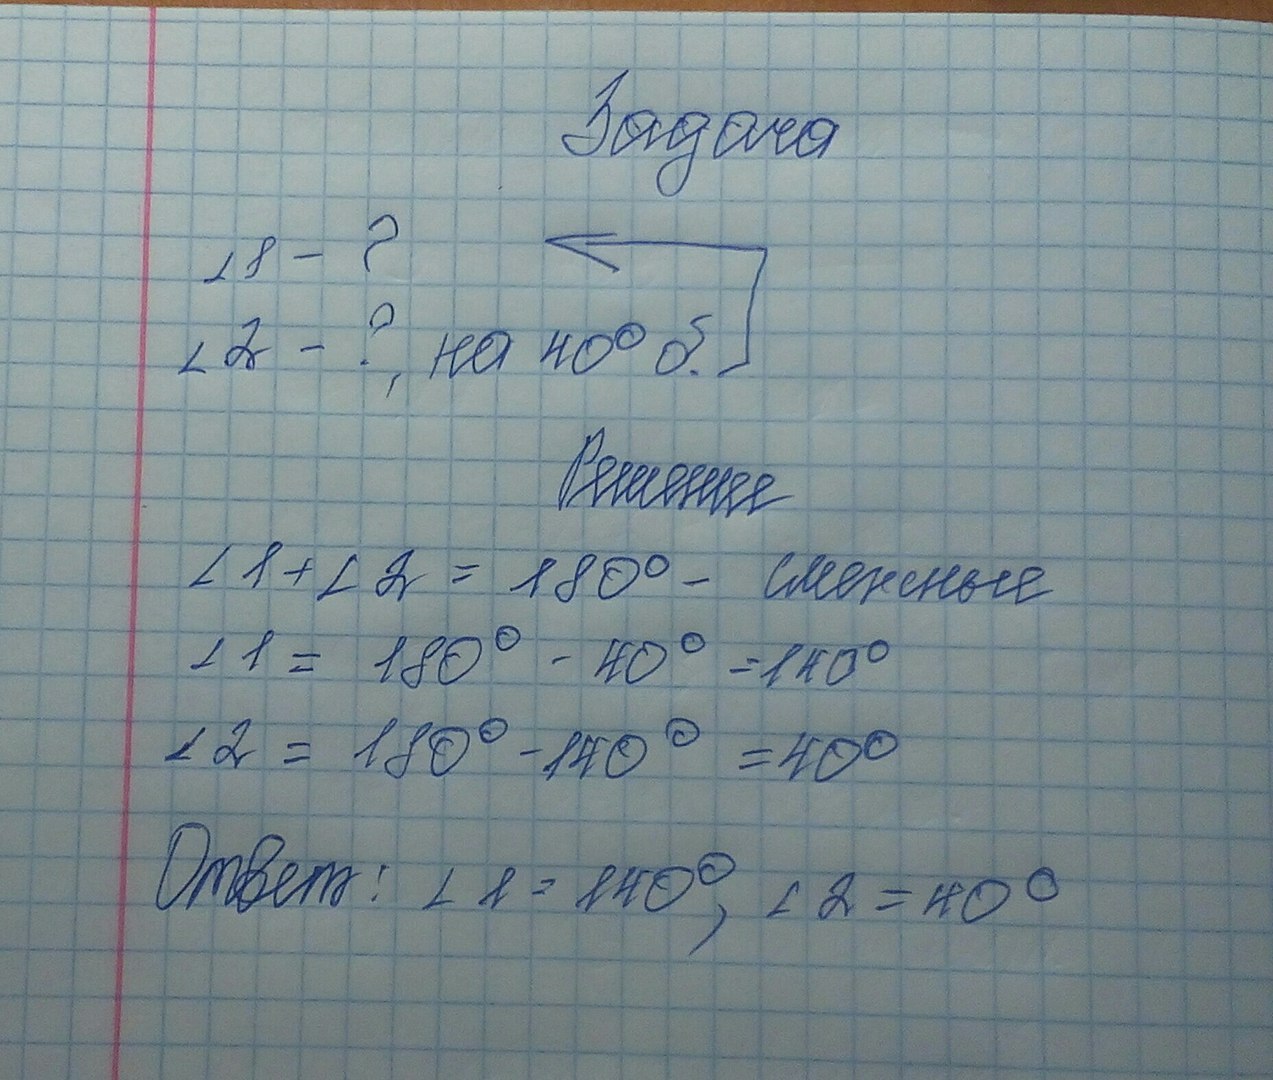 Задача
∠1 - ?
∠2 - ?, на 40° б.
Решение
∠1 + ∠2 = 180° - смежные
∠1 = 180° - 40° = 140°
∠2 = 180° - 140° = 40°
Ответ: ∠1 = 140°, ∠2 = 40°